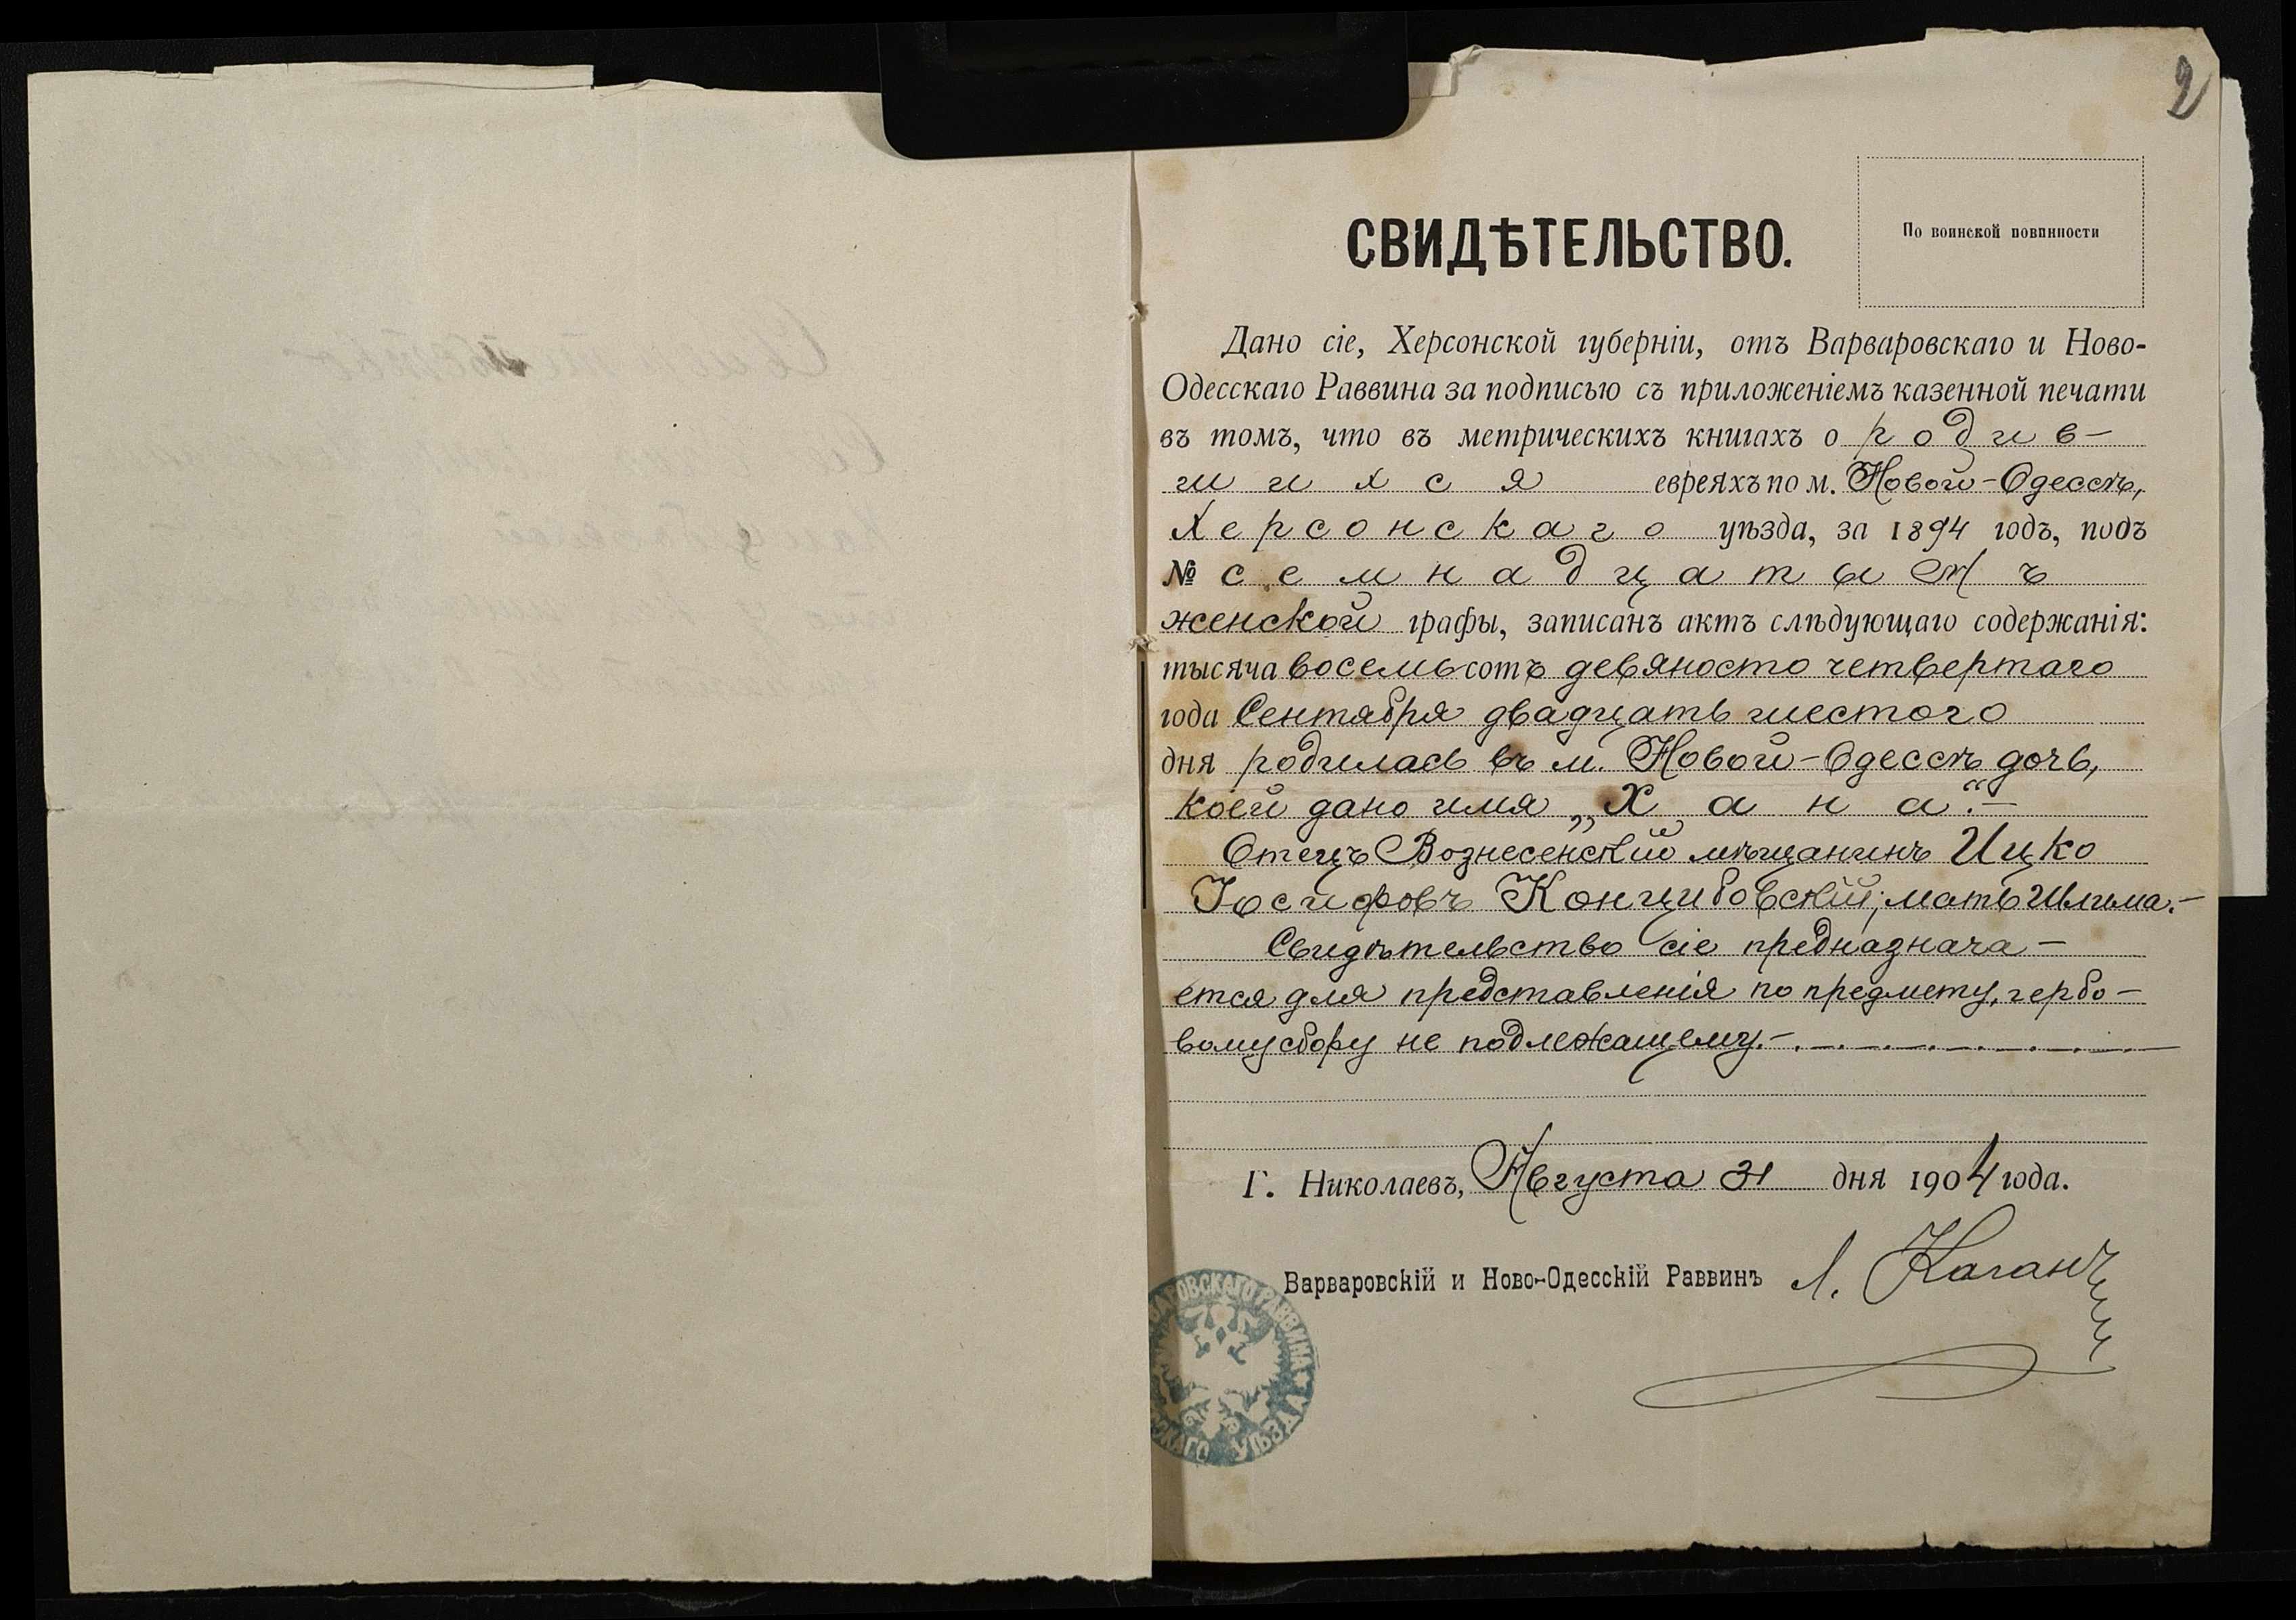 2
СВИДѢТЕЛЬСТВО.
По воинской повинности
Дано сіе, Херсонской губерніи, отъ Варваровскаго и Ново-
Одесскаго Раввина за подписью съ приложеніемъ казенной печати
въ томъ, что въ метрическихъ книгахъ о родив-
шихся евреяхъ по м. Новой-Одессѣ,
Херсонскаго уѣзда, за 1894 годъ, подъ
№ семнадцатымъ
женской графы, записанъ актъ слѣдующаго содержанія:
тысяча восемьсотъ девяносто четвертаго
года Сентября двадцать шестого
дня родилась въ м. Новой-Одессѣ дочь,
коей дано имя „Хана“.-
Отецъ Вознесенскій мѣщанинъ Ицко
Іосифовъ Концибовскій; мать Шлима.-
Свидѣтельство сіе предназнача-
ется для представленія по предмету, гербо-
вому сбору не подлежащему.-
Г. Николаевъ, Августа 31 дня 1904 года.
Варваровскій и Ново-Одесскій Раввинъ Л. Каганъ
ВАРОВСКАГО РАВВИНА * СКАГО УѢЗДА